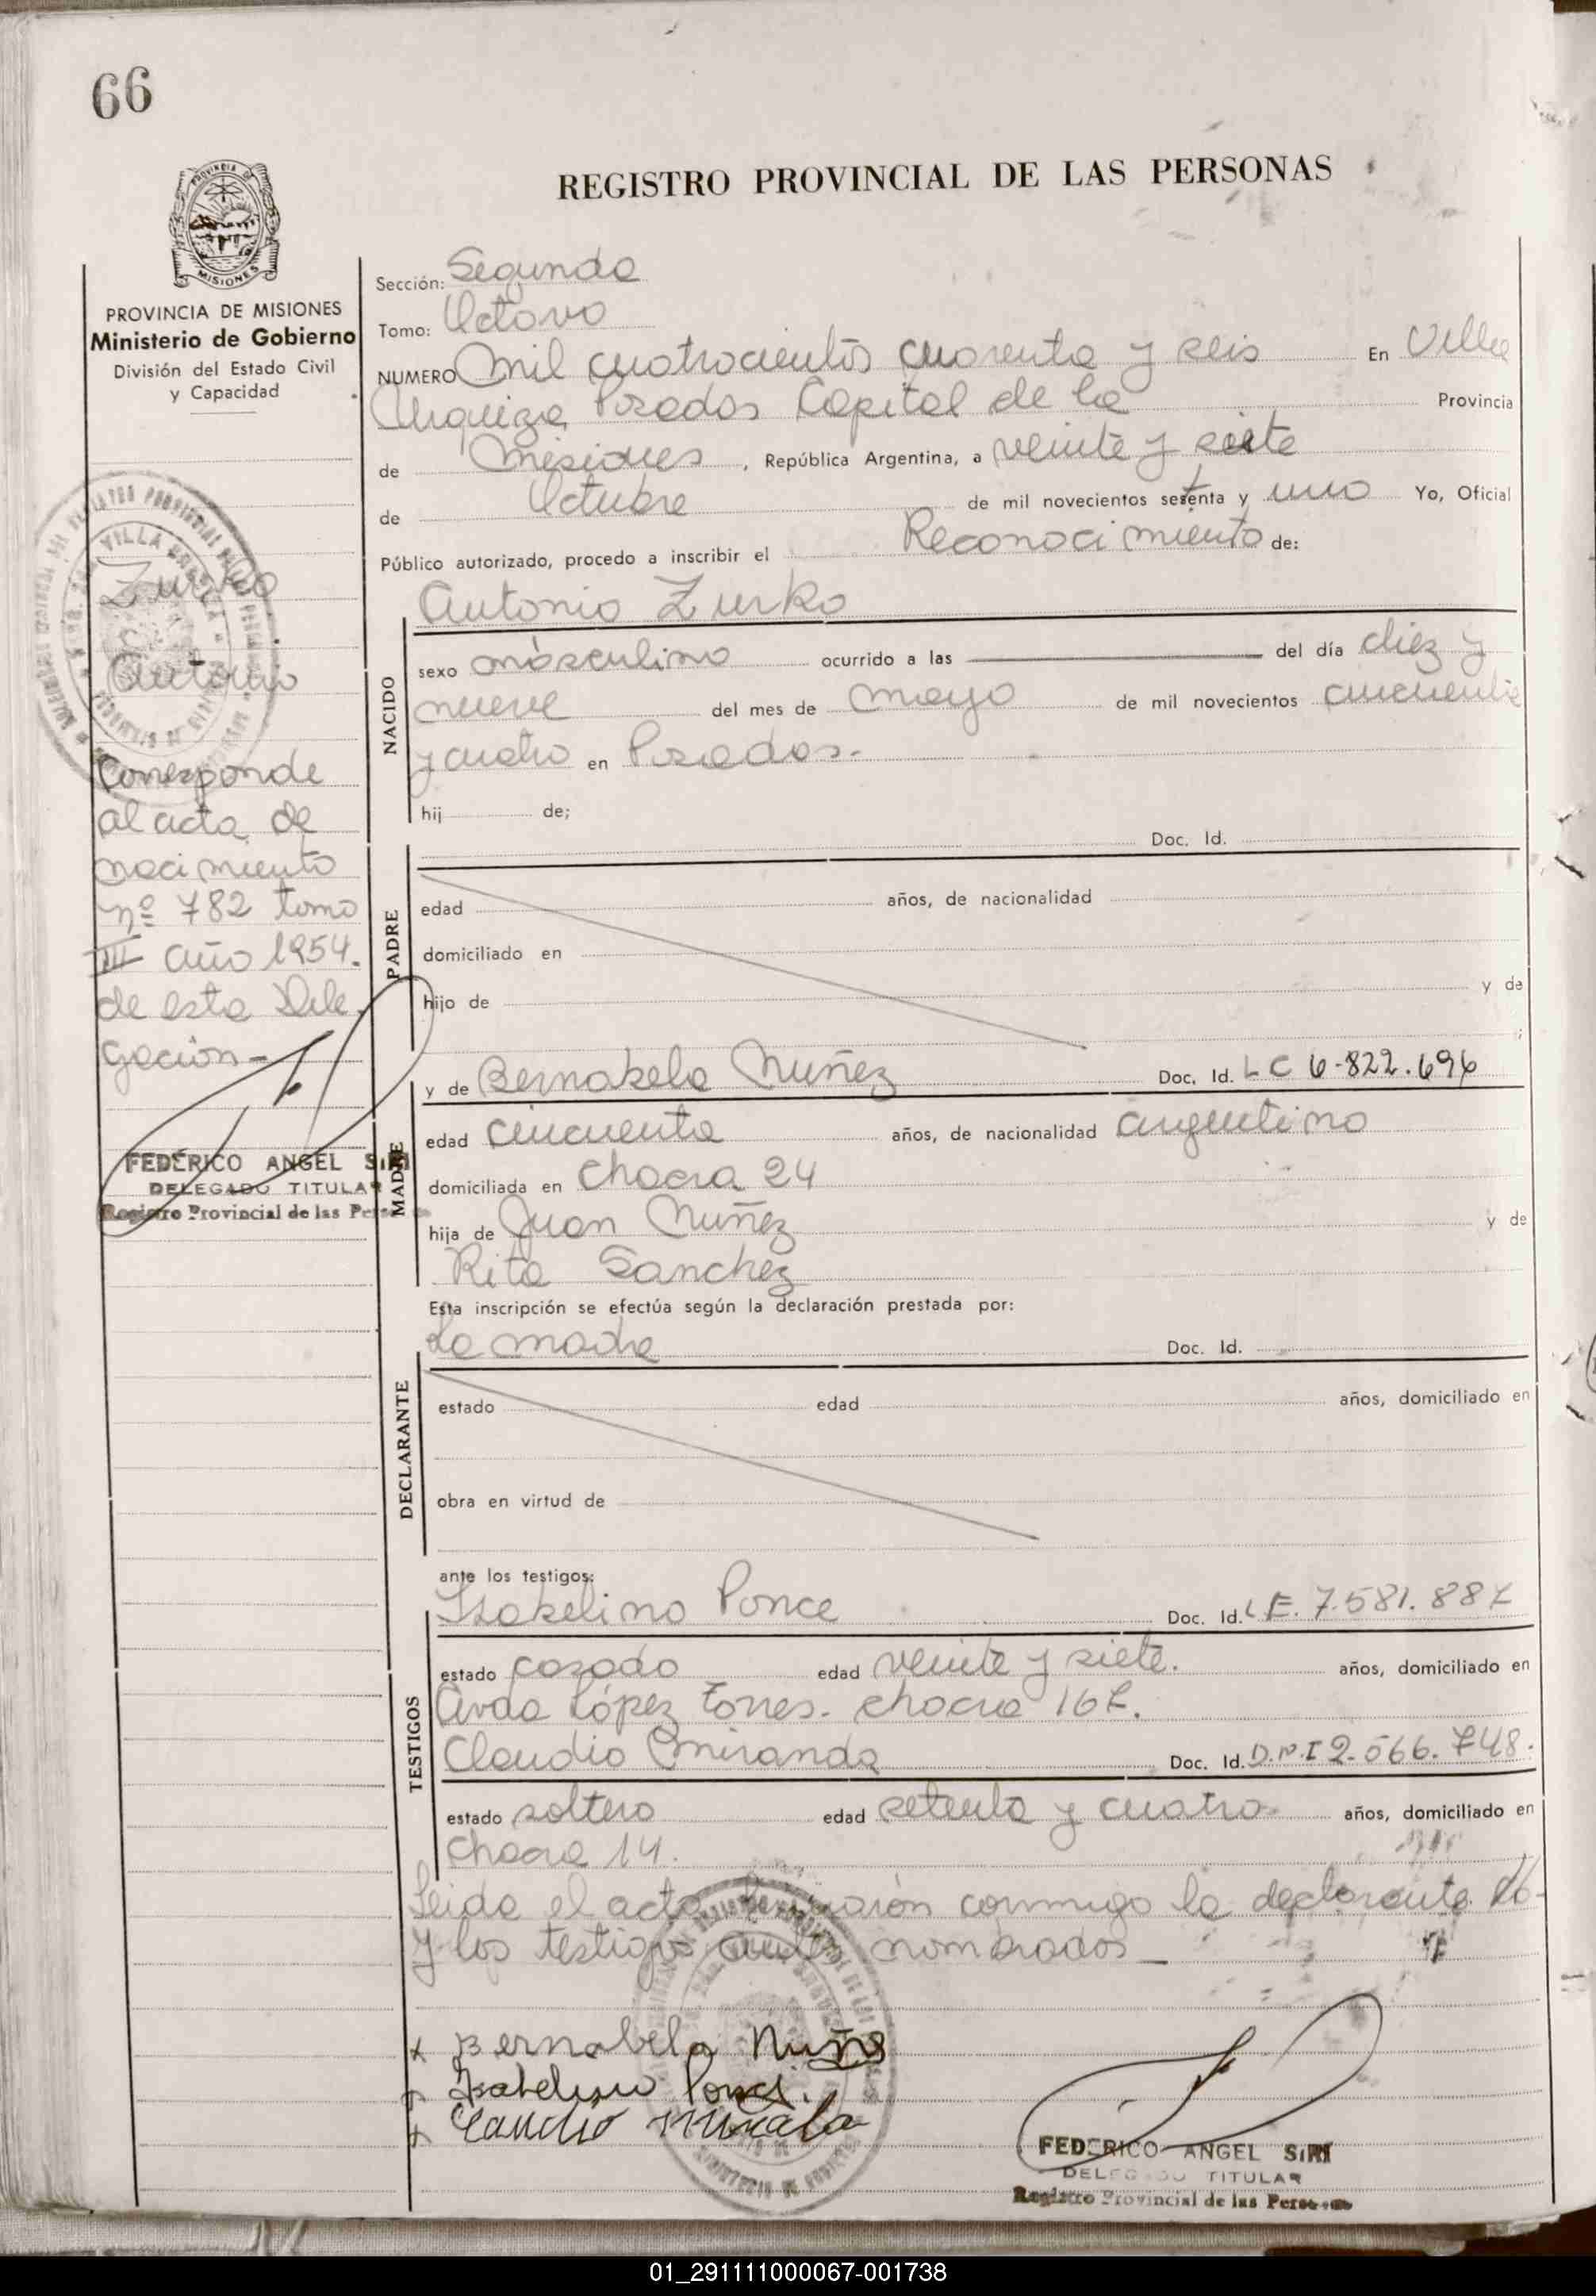 66
REGISTRO PROVINCIAL DE LAS PERSONAS
MISIONES
PROVINCIA DE MISIONES
Ministerio de Gobierno
División del Estado Civil
y Capacidad
Zurko
Antonio
Corresponde
al acta de
nacimiento
nº 782 tomo
III año 1954.
de esta Dele
gación-
FEDERICO ANGEL SIRI
DELEGADO TITULAR
Registro Provincial de las Personas
Sección: Segunda
Tomo: Octavo
NUMERO Mil cuatrocientos cuarenta y seis En Villa
Urquiza, Posadas Capital de la Provincia
de Misiones, República Argentina, a veinte y siete
de Octubre de mil novecientos setenta y uno Yo, Oficial
Público autorizado, procedo a inscribir el Reconocimiento de:
NACIDO
Antonio Zurko
sexo másculino ocurrido a las del día diez y
nueve del mes de mayo de mil novecientos cincuenta
y cuatro en Posadas.-
hij de;
Doc. Id.
PADRE
edad años, de nacionalidad
domiciliado en
hijo de y de
;
MADRE
y de Bernabela Nuñez Doc. Id. LC 6-822.696
edad cincuenta años, de nacionalidad argentina
domiciliada en Chacra 24
hija de Juan Nuñez y de
Rita Sanchez
Esta inscripción se efectúa según la declaración prestada por:
La madre Doc. Id.
DECLARANTE
estado edad años, domiciliado en
obra en virtud de
ante los testigos:
TESTIGOS
Isabelino Ponce Doc. Id. L.E. 7.581.887
estado casado edad veinte y siete. años, domiciliado en
Avda López Torres. chacra 167.
Claudio Miranda Doc. Id. D.N.I 2.566.748.
estado soltero edad setenta y cuatro años, domiciliado en
Chacra 14.
Leida el acta firmarón conmigo la declarante
y los testigos antes nombrados
x Bernabela Nuñes
Isabelino Ponce.
x Claudio Miranda
FEDERICO ANGEL SIRI
DELEGADO TITULAR
Registro Provincial de las Personas
01_291111000067-001738